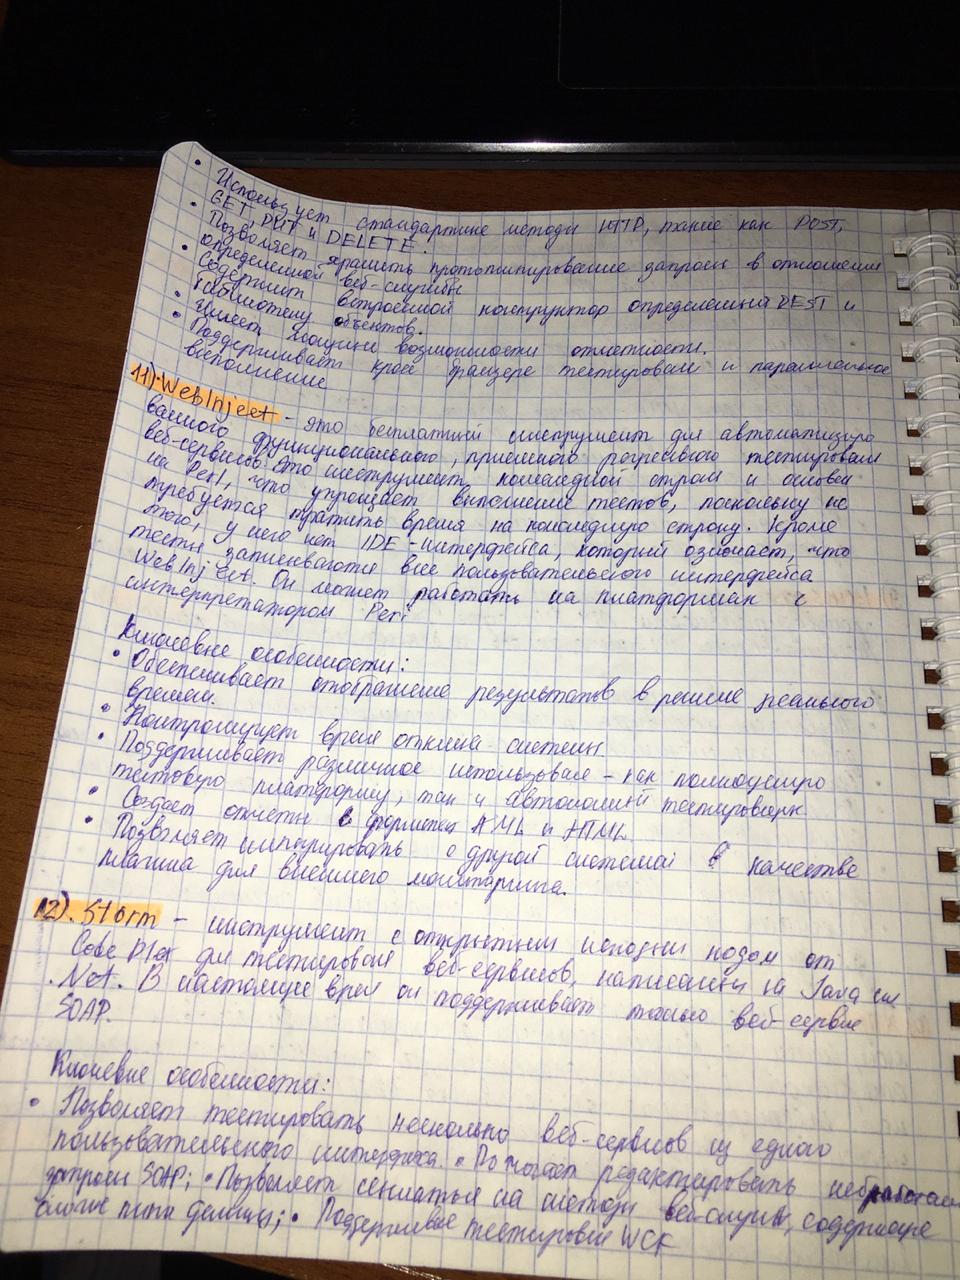 • Использует стандартные методы HTTP, такие как POST,
GET, PUT и DELETE.
• Позволяет хранить прототипирование запросы в отношении
определенной веб-службы
• Содержит встроенной конструктор определения REST и
библиотеку объектов.
• Имеет мощные возможности отчетности.
• Поддерживает кросс браузере тестирован и параллельное
выполнение
11) WebInject - это бесплатный инструмент для автоматизиро
ванного функционального, приемного регресивого тестирован
веб-сервисов. Это инструмент командной строки и основан
на Perl, что упрощает выполнение тестов, поскольку не
требуется тратить время на командную строку. Кроме
того, у него нет IDE-интерфейса, который означает, что
тесты вне пользовательского интерфейса
WebInject. Он может работать на платформах с
интерпретатором Perl
Ключевые особенности:
• Обеспечивает отображение результатов в режиме реального
времени.
• Контролирует время отклика системы
• Поддерживает различное использован - как полноценую
тестовую платформу, так и автономный
• Создает отчеты в форматах XML и HTML
• Позволяет с другой системой в качестве
плагина для внешнего мониторинга.
12). Storm - инструмент с открытым исходным кодом от
Code Plex для тестирован веб-сервисов, написанны на Java или
.Net. В настоящие время он поддерживает только веб-сервис
SOAP.
Ключевые особенности:
• Позволяет тестировать несколько веб-сервисов из одного
пользовательского интерфейса. • Помогает редактировать
запросы SOAP; • Позволяет на методы веб-служб, содержащие
типы данных; • Поддержива тестирован WCF